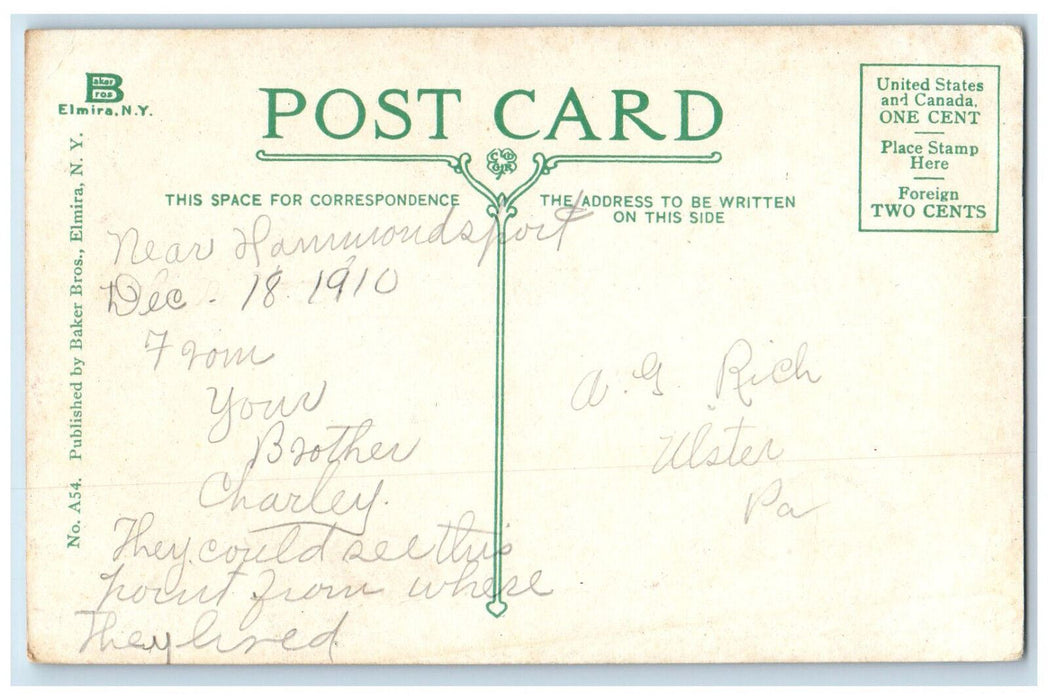 Baker
Bros
Elmira, N.Y.
No. A54. Published by Baker Bros., Elmira, N. Y.
POST CARD
THIS SPACE FOR CORRESPONDENCE
THE ADDRESS TO BE WRITTEN
ON THIS SIDE
United States
and Canada,
ONE CENT
Place Stamp
Here
Foreign
TWO CENTS
Near Hammondsport
Dec. 18. 1910
From
Your
Brother
Charley.
They could see this
point from where
They lived
A. G. Rich
Ulster
Pa